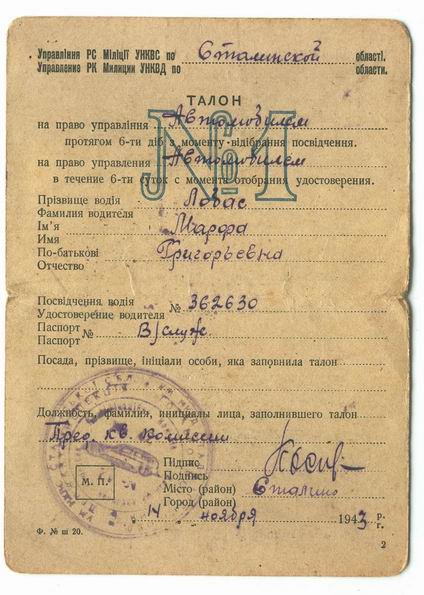 Управління РС Міліції УНКВС по Сталинской області.
Управление РК Милиции УНКВД по области.
ТАЛОН
№ 1
на право управління Автомобилем
протягом 6-ти діб з моменту відібрання посвідчення.
на право управления Автомобилем
в течение 6-ти суток с момента отобрания удостоверения.
Прізвище водія Ловас
Фамилия водителя
Ім'я Марфа
Имя
По-батькові Григорьевна
Отчество
Посвідчення водія № 362630
Удостоверение водителя
Паспорт № В/служ
Паспорт
Посада, прізвище, ініціали особи, яка заповнила талон
Должность, фамилия, инициалы лица, заполнившего талон
Пред. кв. комиссии
Підпис
Подпись
М. П.
Місто (район) Сталино
Город (район)
14 ноября 1943 р.
г.
Ф. № ш 20.
2